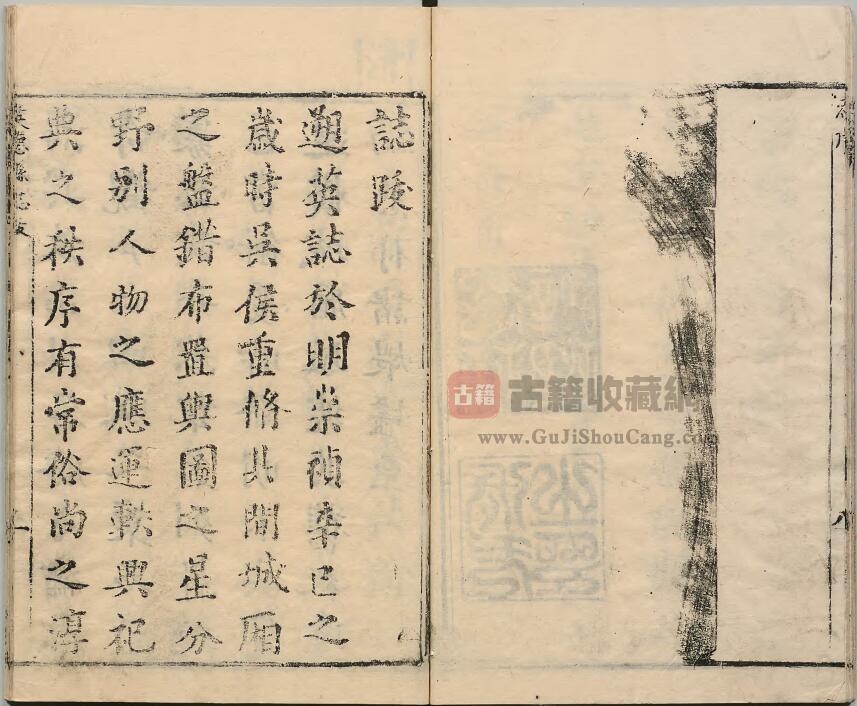 誌跋
遡英誌於明崇禎辛巳之
歲時吳侯重修其間城厢
之盤錯布置輿圖之星分
野別人物之應運軼興祀
典之秩序有常俗尚之淳
英德縣志跋
古籍
古籍收藏網
www.GuJiShouCang.com